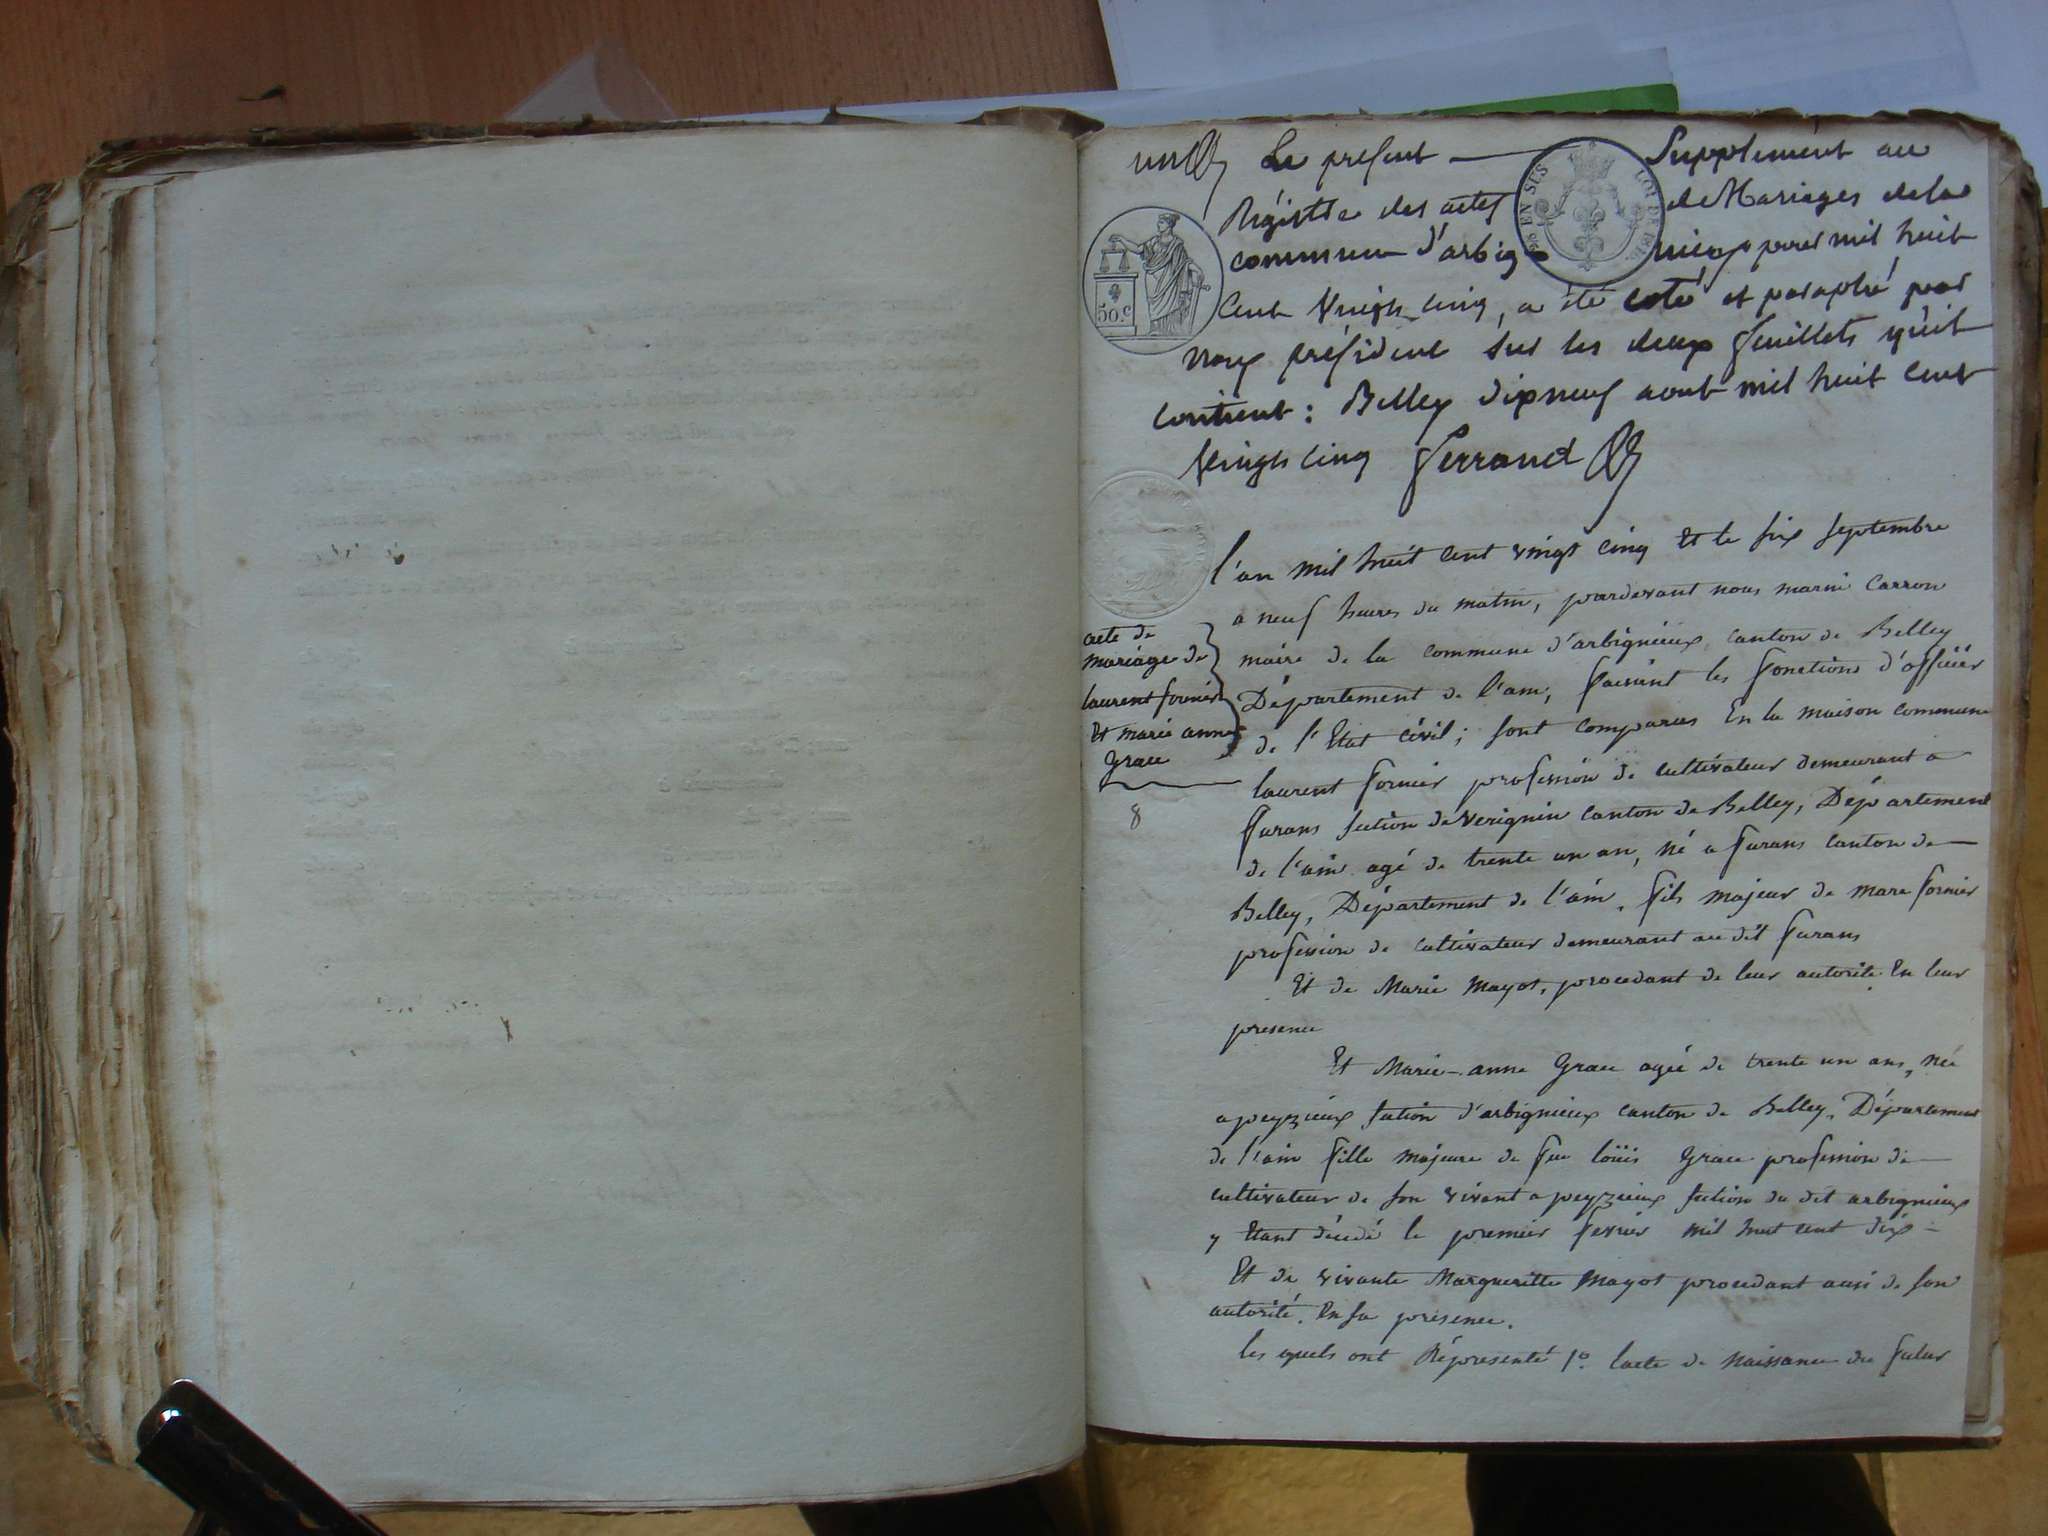 un Le present Supplément au
Régistre des actes de Mariages de la
commune d'arbignieux pour mil huit
Cent Vingt cinq, a été coté et paraphé par
Nous président sur les deux feuillets qu'il
contient : Belley dixneuf aout mil huit cent
vingt cinq Ferrand
50.c
l'an mil huit cent vingt cinq Et le six septembre
a neuf heures du matin, pardevant nous marin Carron
maire de la commune d'arbignieux canton de Belley
Département de l'ain, faisant les fonctions d'officier
de l'Etat civil ; sont comparus En la maison commune
acte de
mariage de
laurent fornier
Et marie anne
Grace
8
laurent fornier profession de cultivateur demeurant a
furans section de Verignin canton de Belley, Département
de l'ain agé de trente un an, né a furans canton de
Belley, Département de l'ain, fils majeur de marc fornier
profession de cultivateur demeurant au dit furans
Et de Marie Mayot, procedant de leur autorité En leur
presence
Et Marie-anne Grace agée de trente un ans, née
a peyzieux section d'arbignieux canton de Belley, Département
de l'ain fille majeure de feu loüis Grace profession de
cultivateur de son vivant a peyzieux section du dit arbignieux
y Etant décedé le premier fevrier mil huit cent dix
Et de vivante Margueritte Mayot procedant aussi de son
autorité. En sa presence.
les quels ont Répresenté 1º. lacte de naissance du futur